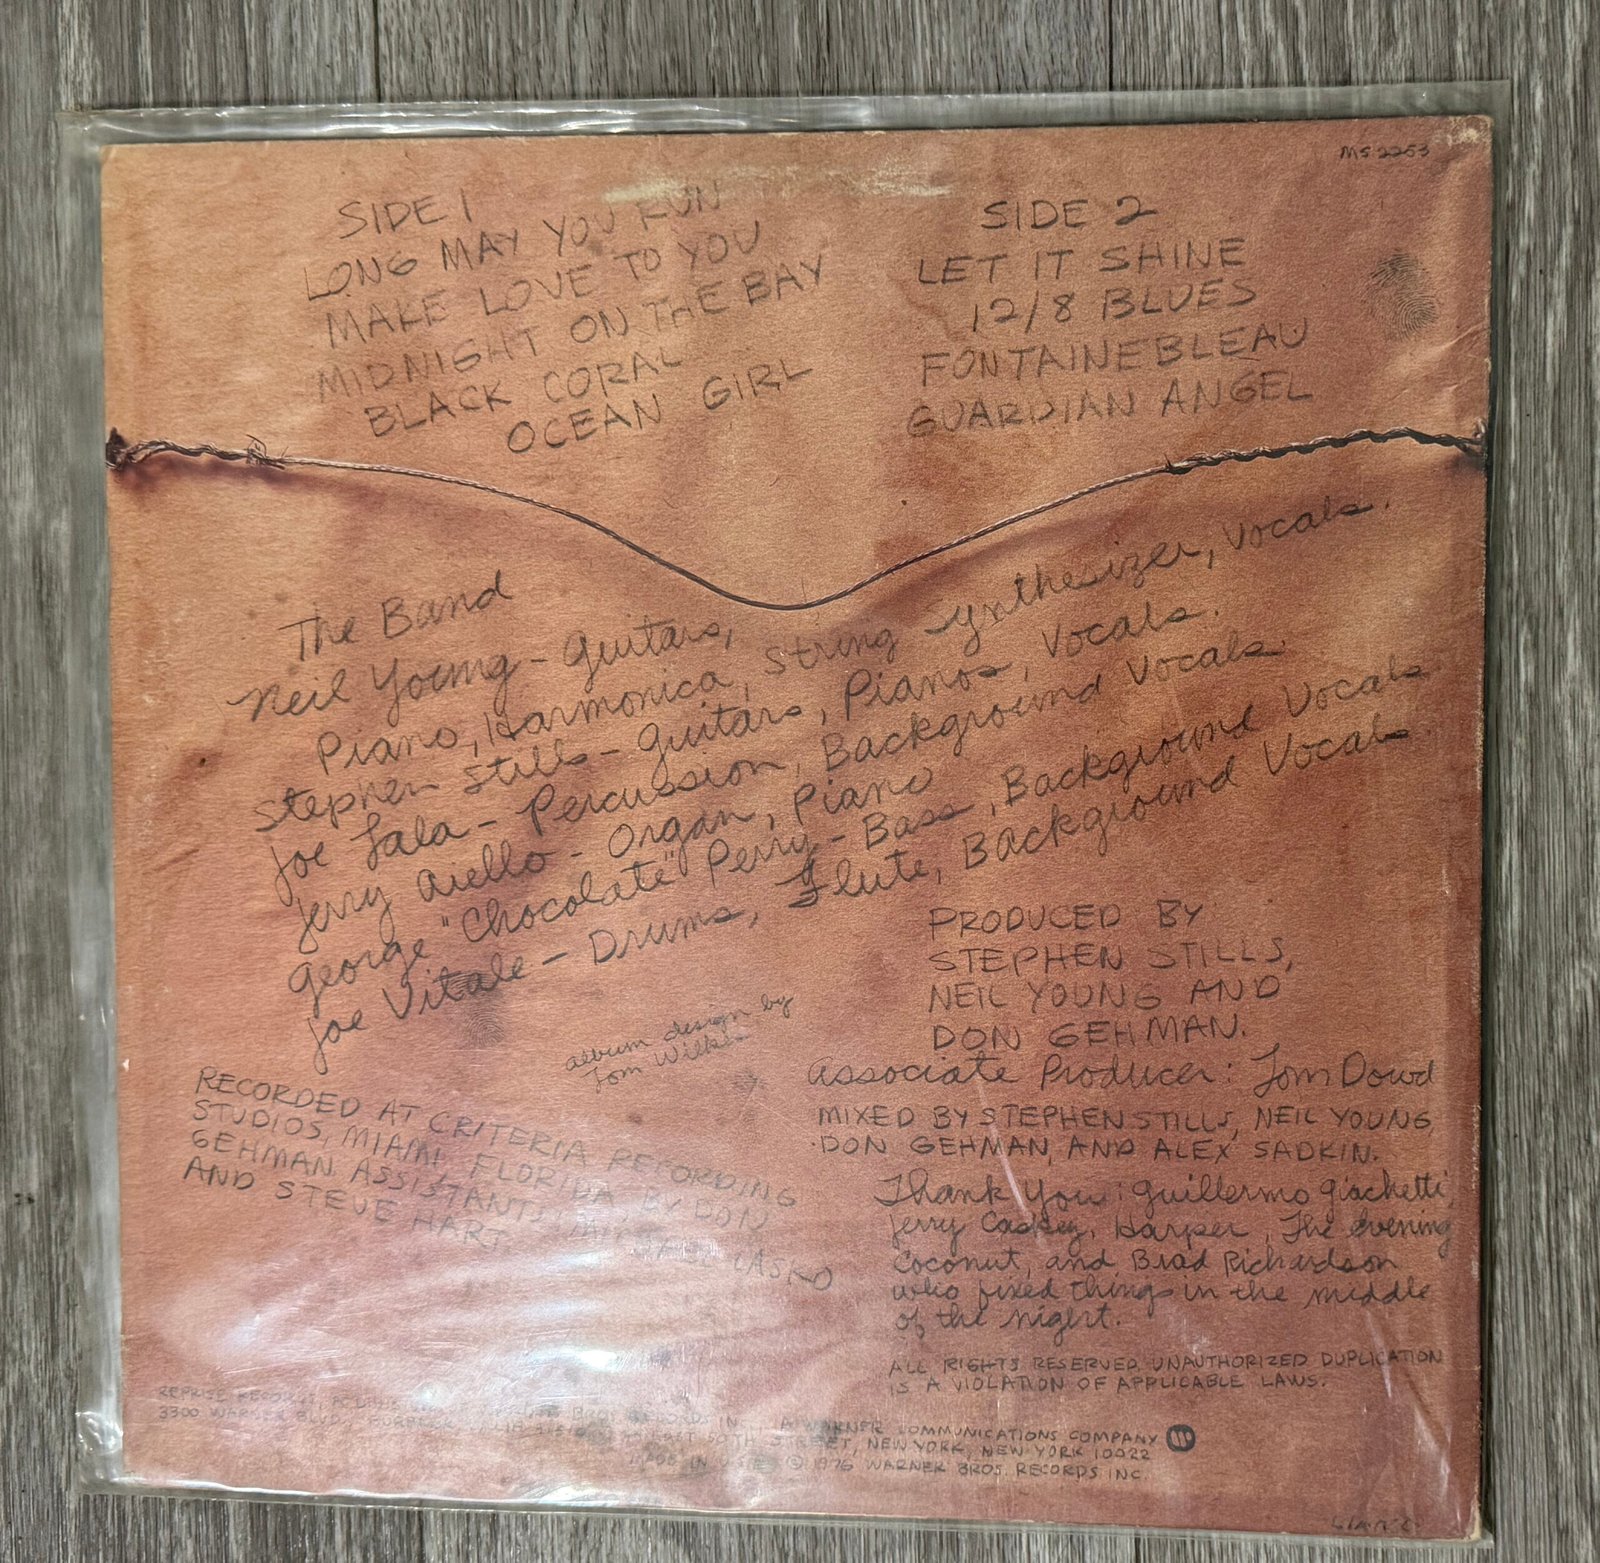 MS 2253
SIDE 1
LONG MAY YOU RUN
MAKE LOVE TO YOU
MIDNIGHT ON THE BAY
BLACK CORAL
OCEAN GIRL
SIDE 2
LET IT SHINE
12/8 BLUES
FONTAINEBLEAU
GUARDIAN ANGEL
The Band
Neil Young - Guitars,
Piano, Harmonica, String Synthesizer, Vocals.
Stephen Stills - Guitars, Pianos, Vocals.
Joe Lala - Percussion, Background Vocals.
Jerry Aiello - Organ, Piano
George "Chocolate" Perry - Bass, Background Vocals
Joe Vitale - Drums, Flute, Background Vocals.
album design by
Tom Wilkes
RECORDED AT CRITERIA RECORDING
STUDIOS, MIAMI, FLORIDA, BY DON
GEHMAN. ASSISTANTS: MICHAEL LASKO
AND STEVE HART
PRODUCED BY
STEPHEN STILLS,
NEIL YOUNG AND
DON GEHMAN.
Associate Producer: Tom Dowd
MIXED BY STEPHEN STILLS, NEIL YOUNG,
DON GEHMAN, AND ALEX SADKIN.
Thank You: Guillermo Giachetti,
Jerry Caskey, Harper, The Evening
Coconut, and Brad Richardson
who fixed things in the middle
of the night.
ALL RIGHTS RESERVED. UNAUTHORIZED DUPLICATION
IS A VIOLATION OF APPLICABLE LAWS.
REPRISE RECORDS, RECORDS INC., A WARNER COMMUNICATIONS COMPANY
3300 WARNER BLVD., BURBANK, EAST 50TH STREET, NEW YORK, NEW YORK 10022
MADE IN U.S.A. © 1976 WARNER BROS. RECORDS INC.